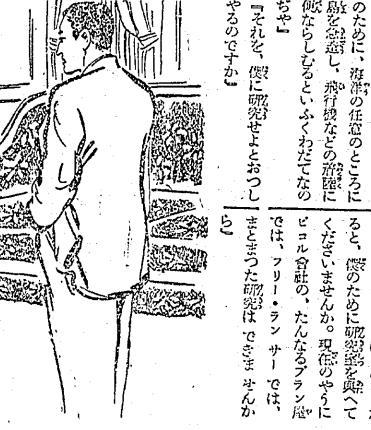 のために、海洋の任意のところに
島を急造し、飛行機などの着陸に
便ならしむるといふくわだてなの
ぢや』
『それを、僕に研究せよとおつし
やるのですか』
ると、僕のために研究室を與へて
くださいませんか。現在のやうに
ピコル會社の、たんなるプラン屋
では、フリー・ランサーでは、
まとまつた研究はできませんか
ら』